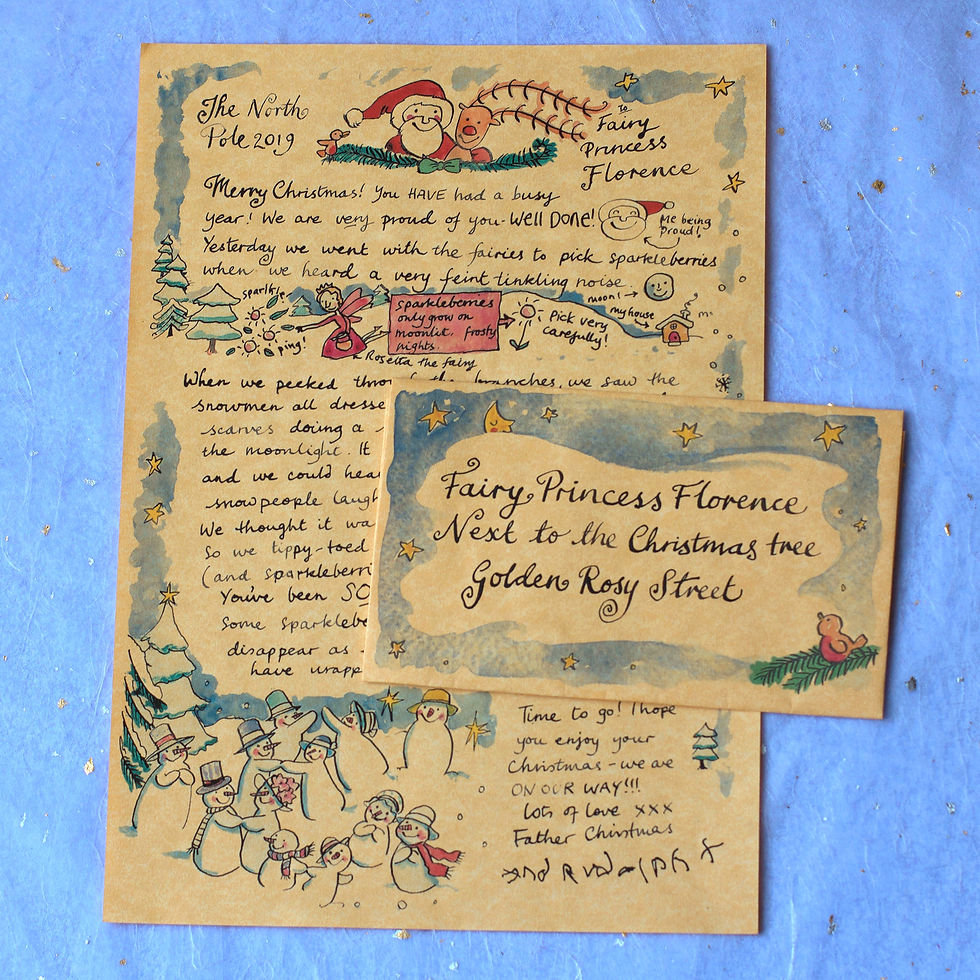 The North
Pole 2019
To
Fairy
Princess
Florence
Merry Christmas! You HAVE had a busy
year! We are very proud of you - WELL DONE!
Me being
Proud!
Yesterday we went with the fairies to pick sparkleberries
when we heard a very feint tinkling noise.
sparkle
ping!
Rosetta the fairy
sparkleberries
only grow on
moonlit, frosty
nights.
Pick very
carefully!
moon!
my house
When we peeked the branches, we saw the
snowmen all
scarves doing a
the moonlight. It
and we could
snowpeople
We thought it
So we tippy-toed
(and
You've been
Some
disappear as
have
Fairy Princess Florence
Next to the Christmas tree
Golden Rosy Street
Time to go! I hope
you enjoy your
Christmas - we are
ON OUR WAY!!!
Lots of love xxx
Father Christmas
and Rudolph x